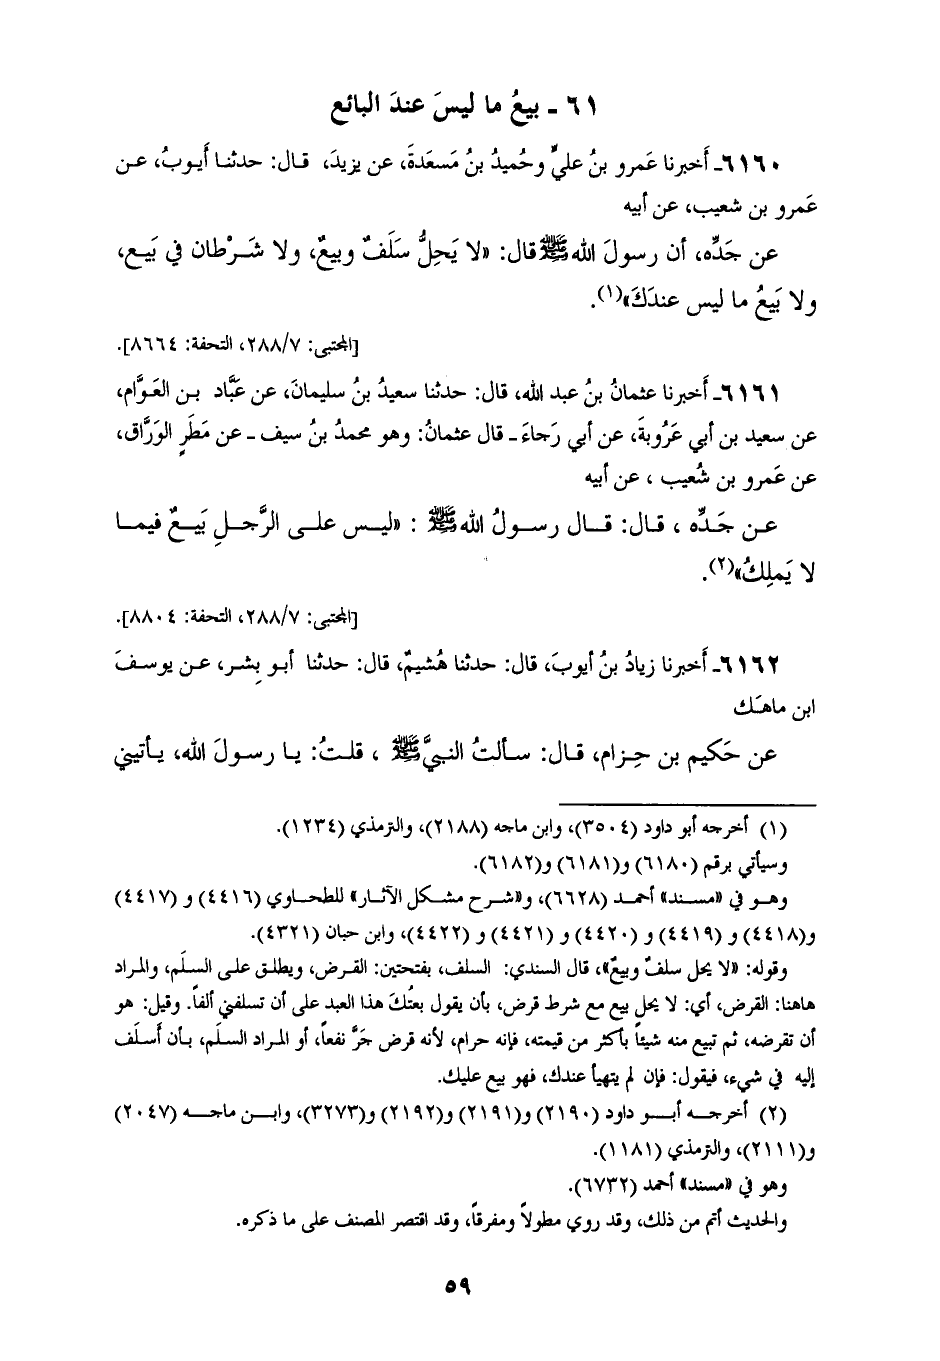 ٦١ ـ بيعُ ما ليسَ عندَ البائع
٦١٦٠ـ أَخبرنا عَمرو بنُ عليٍّ وحُميدُ بنُ مَسعَدةَ، عن يزيدَ، قـال: حدثنـا أَيـوبُ، عـن
عَمرو بن شعيب، عن أبيه
عن جَدِّه، أن رسولَ اللهﷺ قال: «لا يَحِلُّ سَلَفٌ وبيعٌ، ولا شَـرْطان في بَيـع،
ولا بَيعُ ما ليس عندَكَ»(١).
[المجتبى: ٢٨٨/٧، التحفة: ٨٦٦٤].
٦١٦١ـ أَخبرنا عثمانُ بنُ عبد الله، قال: حدثنا سعيدُ بنُ سليمانَ، عن عبَّاد بـن العَـوَّام،
عن سعيد بن أبي عَرُوبةَ، عن أبي رَجاءَ ـ قال عثمانُ: وهو محمدُ بنُ سيف ـ عن مَطَرٍ الوَرَّاق،
عن عَمرو بن شُعيب ، عن أبيه
عـن جَـدِّه ، قـال: قـــال رســولُ اللهﷺ : «ليــس علــى الرَّجــلِ بَيــعٌ فيمــا
لا يَملِكُ»(٢).
[المجتبى: ٢٨٨/٧، التحفة: ٨٨٠٤].
٦١٦٢ـ أَخبرنا زيادُ بنُ أيوبَ، قال: حدثنا هُشيمٌ، قال: حدثنا أبـو بِشـر، عـن يوسـفَ
ابن ماهَك
عن حَكيم بن حِـزام، قـال: سـألتُ النبيَّﷺ ، قلـتُ: يـا رسـولَ الله، يـأتيني
(١) أخرجه أبو داود (٣٥٠٤)، وابن ماجه (٢١٨٨)، والترمذي (١٢٣٤).
وسيأتي برقم (٦١٨٠) و(٦١٨١) و(٦١٨٢).
وهـو في «مسـند» أحمـد (٦٦٢٨)، و«شـرح مشـكل الآثـار» للطحـاوي (٤٤١٦) و (٤٤١٧)
و(٤٤١٨) و (٤٤١٩) و (٤٤٢٠) و (٤٤٢١) و (٤٤٢٢)، وابن حبان (٤٣٢١).
وقوله: «لا يحل سلفٌ وبيعٌ»، قال السندي: السلف، بفتحتين: القـرض، ويطلـق علـى السلَم، والمـراد
هاهنا: القرض، أي: لا يحل بيع مع شرط قرض، بأن يقول بعتُكَ هذا العبد على أن تسلفني ألفاً. وقيل: هو
أن تقرضه، ثم تبيع منه شيئاً بأكثر من قيمته، فإنه حرام، لأنه قرض جَرَّ نفعاً، أو المـراد السلَم، بـأن أَسـلَف
إليه في شيء، فيقول: فإن لم يتهيأ عندك، فهو بيع عليك.
(٢) أخرجـــه أبـــو داود (٢١٩٠) و(٢١٩١) و(٢١٩٢) و(٣٢٧٣)، وابـــن ماجـــه (٢٠٤٧)
و(٢١١١)، والترمذي (١١٨١).
وهو في «مسند» أحمد (٦٧٣٢).
والحديث أتم من ذلك، وقد روي مطولاً ومفرقاً، وقد اقتصر المصنف على ما ذكره.
٥٩